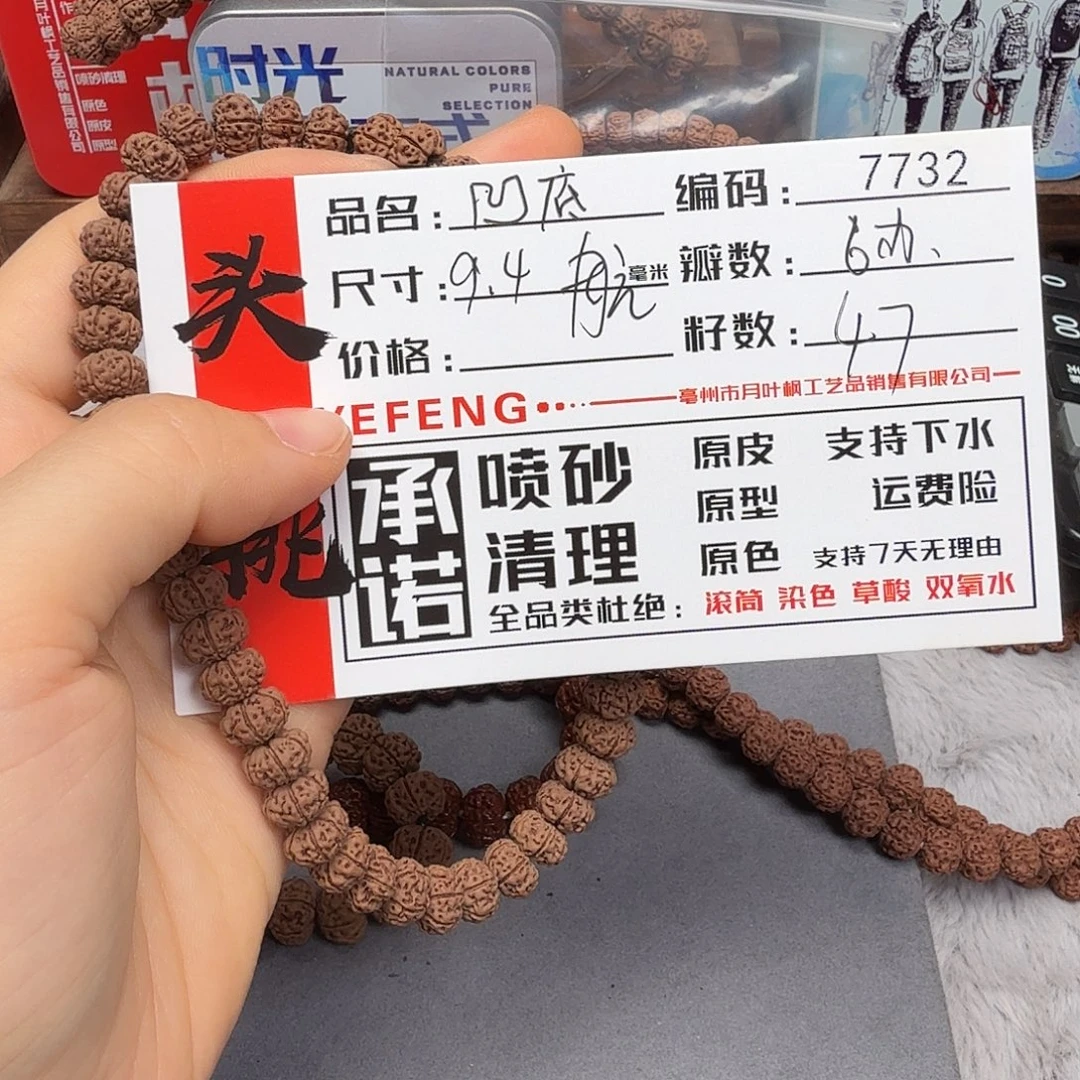 月叶枫工艺品销售有限公司
喷砂清理
原色
原皮
原型
时光
NATURAL COLORS
PURE
SELECTION
品名：凹底
编码：7732
尺寸：9.4 航 毫米
瓣数：6
价格：
籽数：47
头
YEFENG
亳州市月叶枫工艺品销售有限公司
承诺
喷砂
清理
原皮
原型
原色
支持下水
运费险
支持7天无理由
全品类杜绝：滚筒 染色 草酸 双氧水